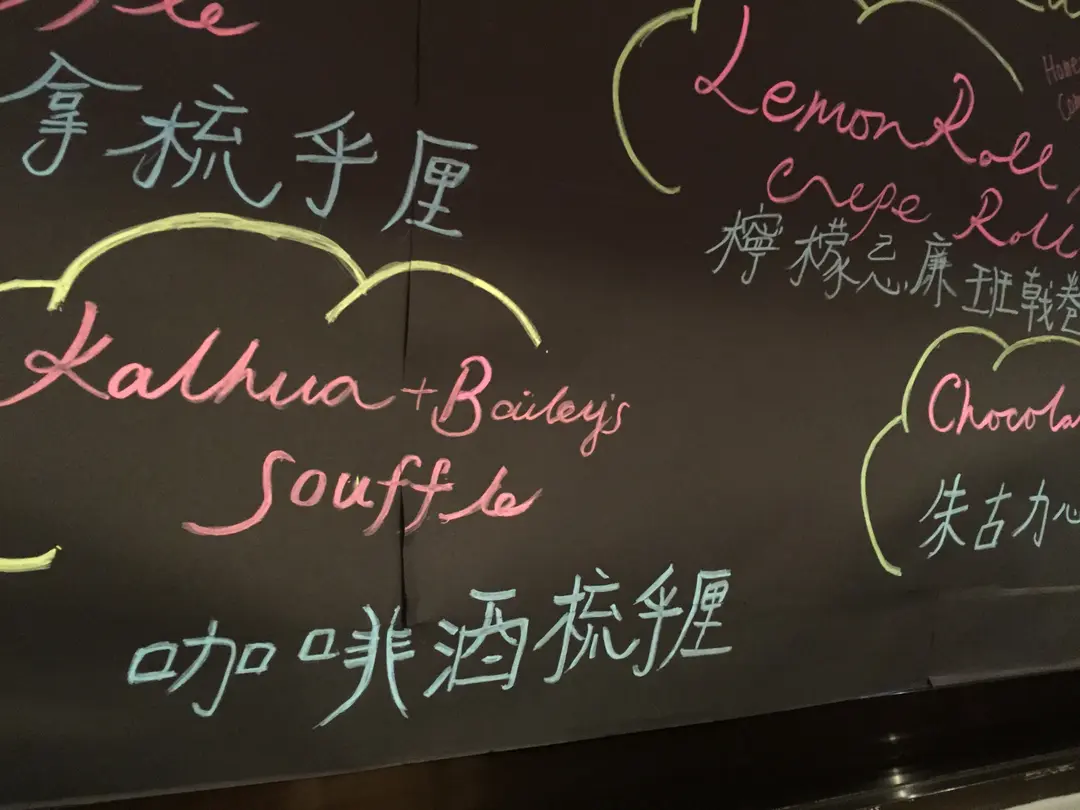 拿梳乎厘
Kalhua + Bailey's
Souffle
咖啡酒梳乎厘
Lemon Roll
Crepe Roll
檸檬忌廉班戟卷
Chocola
朱古力心